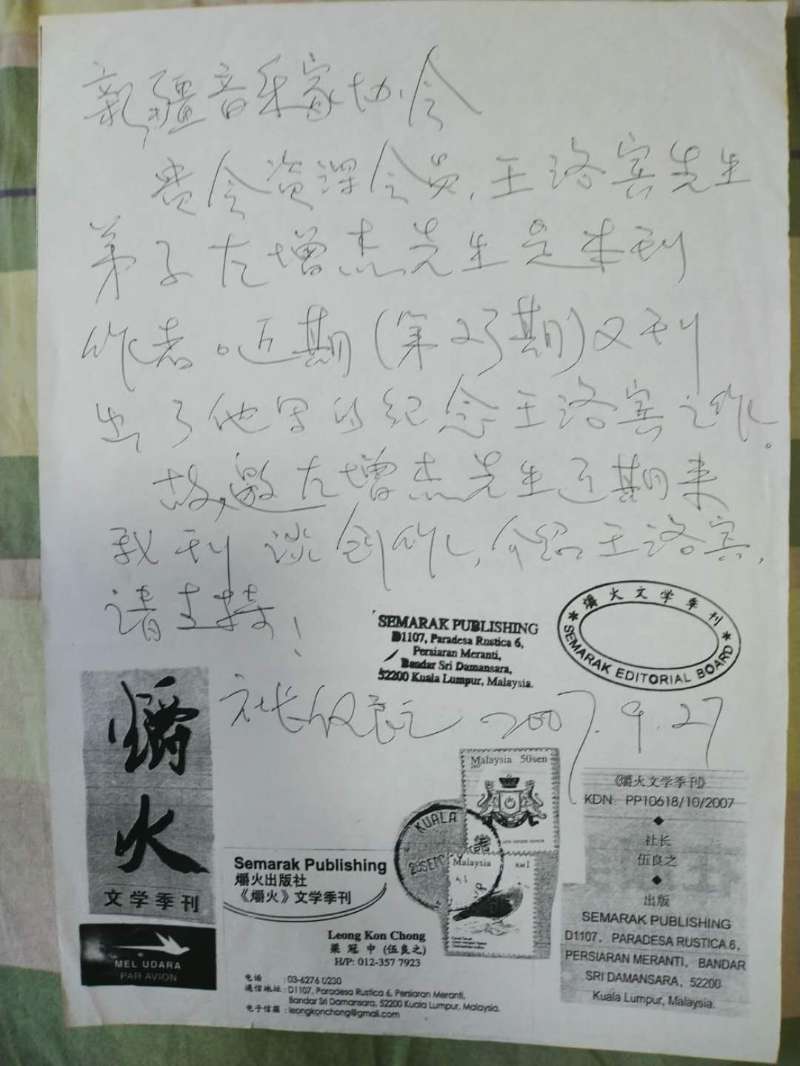 新疆音乐家协会
贵会资深会员，王洛宾先生
弟子左增杰先生是本刊
作者。近期（第23期）又刊
出了他写的纪念王洛宾之作。
故，邀左增杰先生近期来
我刊谈创作，介绍王洛宾，
请支持！
SEMARAK PUBLISHING
D1107, Paradesa Rustica 6,
Persiaran Meranti,
Bandar Sri Damansara,
52200 Kuala Lumpur, Malaysia.
* 爝火文学季刊 *
SEMARAK EDITORIAL BOARD
社长伍良之 2007.9.27
爝火
文学季刊
MEL UDARA
PAR AVION
Semarak Publishing
爝火出版社
《爝火》文学季刊
Malaysia 50sen
KUALA
Malaysia
RM1
Leong Kon Chong
梁冠中(伍良之)
H/P: 012-357 7923
电话 : 03-6276 0230
通信地址 : D1107, Paradesa Rustica 6, Persiaran Meranti,
Bandar Sri Damansara, 52200 Kuala Lumpur, Malaysia.
电子信箱 : leongkonchong@gmail.com
《爝火文学季刊》
KDN PP10618/10/2007
社长
伍良之
出版
SEMARAK PUBLISHING
D1107, PARADESA RUSTICA 6,
PERSIARAN MERANTI, BANDAR
SRI DAMANSARA, 52200
Kuala Lumpur, Malaysia.